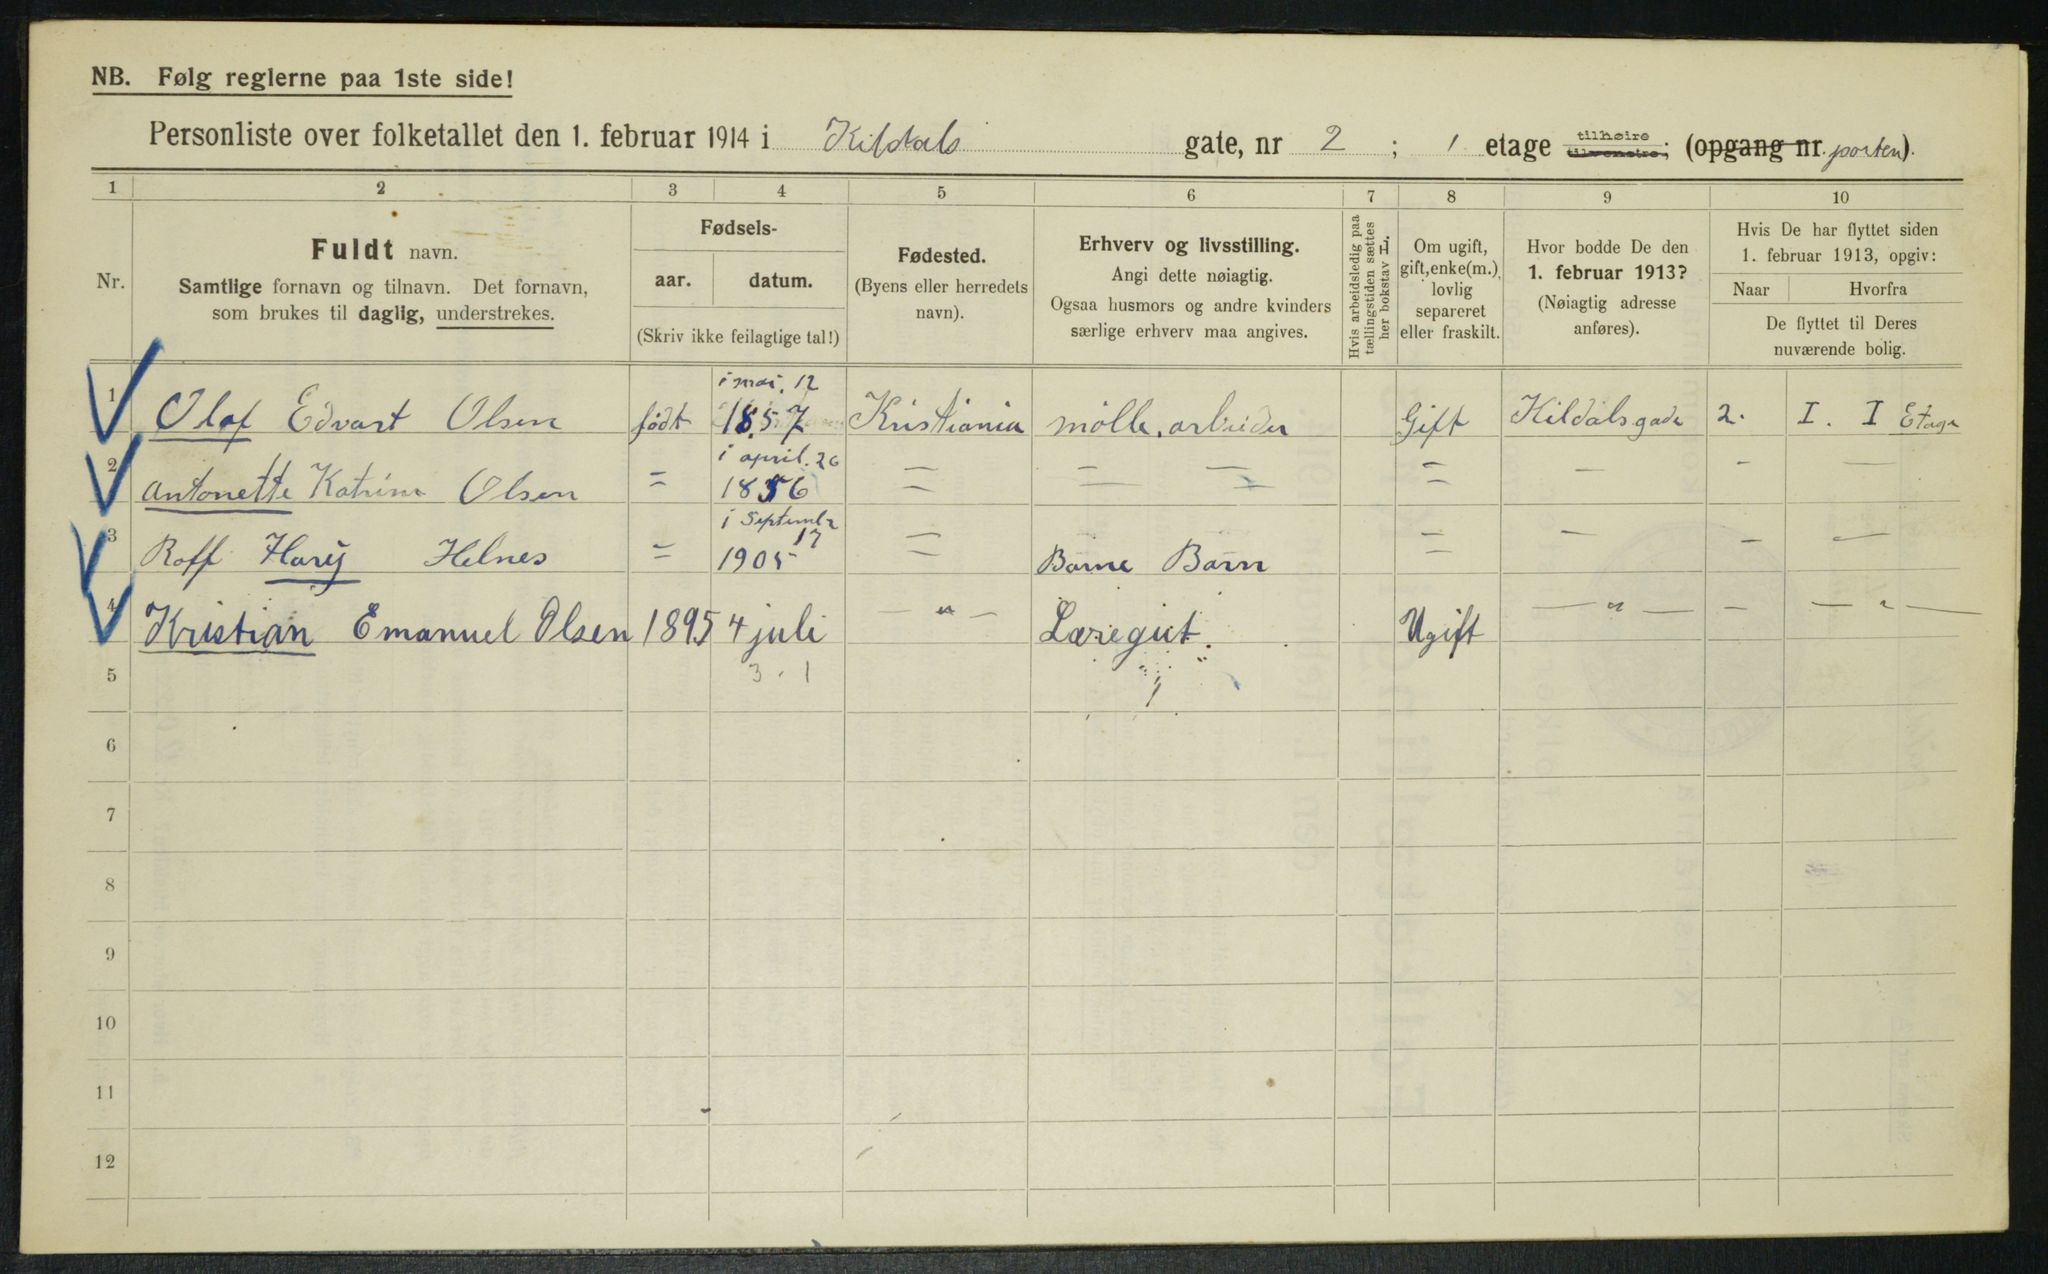 NB. Følg reglerne paa 1ste side!
Personliste over folketallet den 1. februar 1914 i Kildals gate, nr 2 ; 1 etage tilhøire tilvenstre; (opgang nr. porten).
1 2 3 4 5 6 7 8 9 10
Nr.
Fuldt navn.
Samtlige fornavn og tilnavn. Det fornavn,
som brukes til daglig, understrekes.
Fødsels-
aar. datum.
(Skriv ikke feilagtige tal!)
Fødested.
(Byens eller herredets
navn).
Erhverv og livsstilling.
Angi dette nøiagtig.
Ogsaa husmors og andre kvinders
særlige erhverv maa angives.
Hvis arbeidsledig paa
tællingstiden sættes
her bokstav L.
Om ugift,
gift, enke(m.),
lovlig
separeret
eller fraskilt.
Hvor bodde De den
1. februar 1913?
(Nøiagtig adresse
anføres).
Hvis De har flyttet siden
1. februar 1913, opgiv:
Naar Hvorfra
De flyttet til Deres
nuværende bolig.
i mai. 12
1 Olaf Edvart Olsen født 1857 Kristiania mølle.arbeider Gift Kildalsgade 2. I. I Etage
i april. 26
2 Antonette Katrine Olsen = 1856 = — — = — - —
i septembr
17
3 Roff Harij Helnes = 1905 = Barne Barn = — - —
4 Kristian Emanuel Olsen 1895 4 juli — " — Læregut. Ugift — " — - — " —
5 3 . 1
6
7
8
9
10
11
12